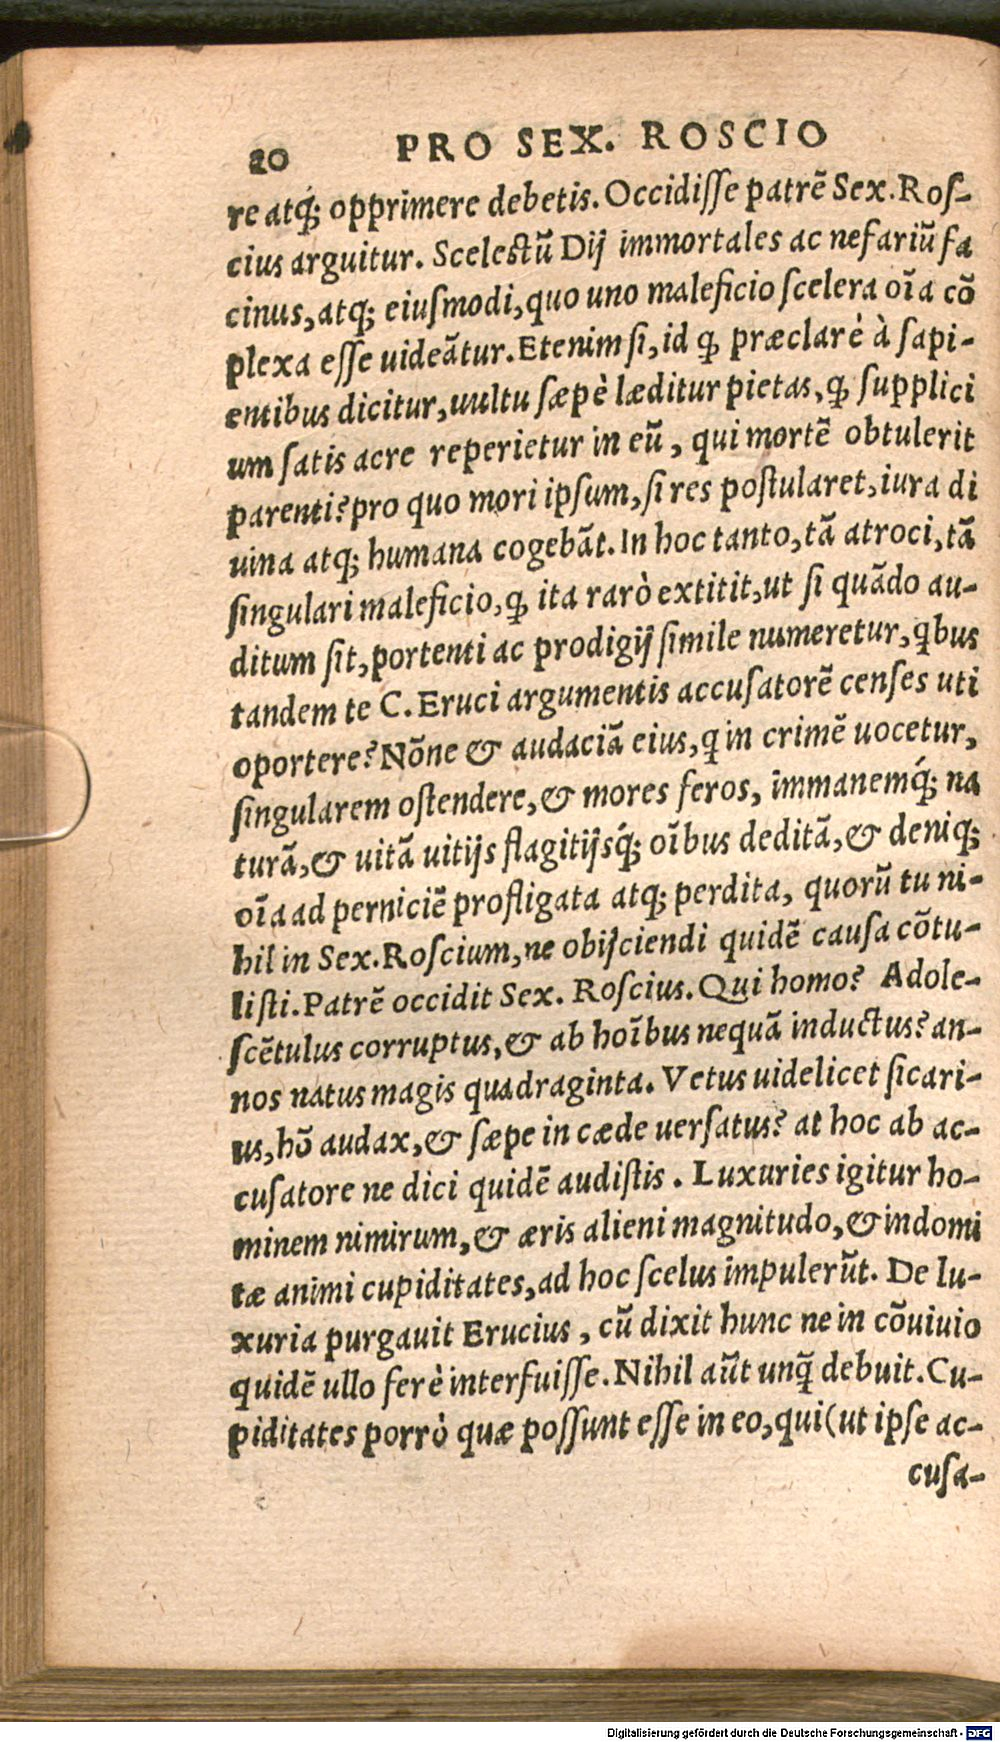 20 PRO SEX. ROSCIO
re atq́; opprimere debetis. Occidiſſe patrẽ Sex. Roſ-
cius arguitur. Scelectũ Dij immortales ac nefariũ fa
cinus, atq; eiuſmodi, quo uno maleficio ſcelera oĩa cõ
plexa eſſe uideãtur. Etenim ſi, id q̃ præclarè à ſapi-
entibus dicitur, uultu ſæpè læditur pietas, q̃ ſupplici
um ſatis acre reperietur in eũ, qui mortẽ obtulerit
parenti? pro quo mori ipſum, ſi res poſtularet, iura di
uina atq; humana cogebãt. In hoc tanto, tã atroci, tã
ſingulari maleficio, q̃ ita rarò extitit, ut ſi quãdo au-
ditum ſit, portenti ac prodigij ſimile numeretur, q̃bus
tandem te C. Eruci argumentis accuſatorẽ cenſes uti
oportere? Nõne & audaciã eius, q̃ in crimẽ uocetur,
ſingularem oſtendere, & mores feros, immanemq́; na
turã, & uitã uitijs flagitijsq́; oĩbus deditã, & deniq;
oĩa ad perniciẽ profligata atq; perdita, quorũ tu ni-
hil in Sex. Roſcium, ne obijciendi quidẽ cauſa cõtu-
liſti. Patrẽ occidit Sex. Roſcius. Qui homo? Adole-
ſcẽtulus corruptus, & ab hoĩbus nequã inductus? an-
nos natus magis quadraginta. Vetus uidelicet ſicari-
us, hõ audax, & ſæpe in cæde uerſatus? at hoc ab ac-
cuſatore ne dici quidẽ audiſtis. Luxuries igitur ho-
minem nimirum, & æris alieni magnitudo, & indomi
tæ animi cupiditates, ad hoc ſcelus impulerũt. De lu-
xuria purgauit Erucius, cũ dixit hunc ne in cõuiuio
quidẽ ullo ferè interfuiſſe. Nihil aũt unq̃ debuit. Cu-
piditates porrò quæ poſſunt eſſe in eo, qui (ut ipſe ac-
cuſa-
Digitalisierung gefördert durch die Deutsche Forschungsgemeinschaft - DFG